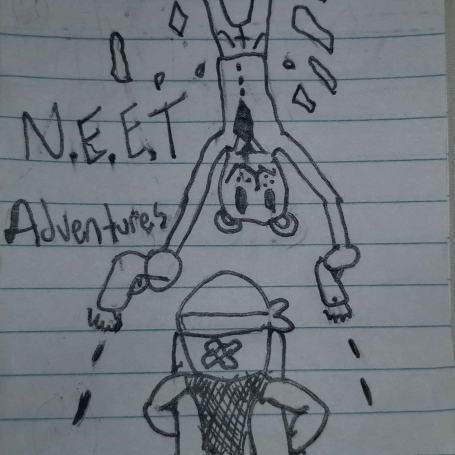 N.E.E.T
Adventures